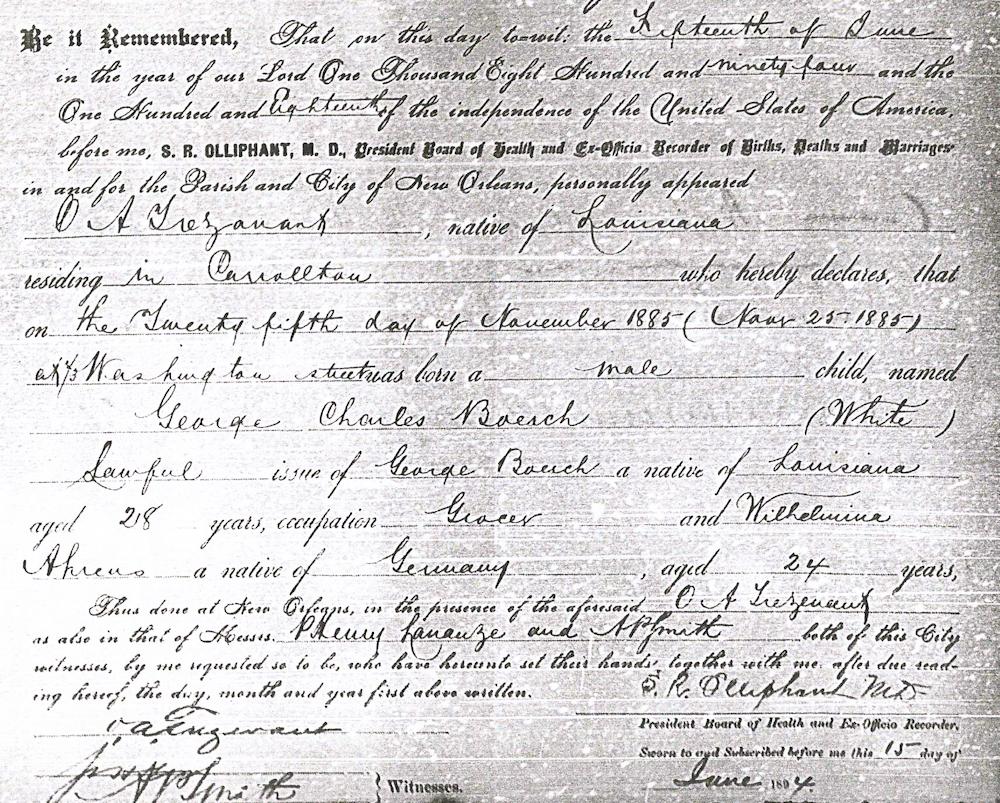 Be it Remembered, That on this day to=wit: the Fifteenth of June
in the year of our Lord One Thousand Eight Hundred and ninety four and the
One Hundred and Eighteenth of the independence of the United States of America,
before me, S. R. OLLIPHANT, M. D., President Board of Health and Ex-Officio Recorder of Births, Deaths and Marriages
in and for the Parish and City of New Orleans, personally appeared
O A Trezevant, native of Louisiana
residing in Carrollton who hereby declares, that
on the Twenty fifth day of November 1885 (Novr 25-1885)
at Washington street was born a male child, named
George Charles Boesch (White)
Lawful issue of George Boesch a native of Louisiana
aged 28 years, occupation Grocer and Wilhelmina
Ahrens a native of Germany, aged 24 years,
Thus done at New Orleans, in the presence of the aforesaid O A Trezevant
as also in that of Messrs. P Henry Lanauze and A P Smith both of this City
witnesses, by me requested so to be, who have hereunto set their hands, together with me, after due read-
ing hereof, the day, month and year first above written. S. R. Olliphant MD
O A Trezevant President Board of Health and Ex-Officio Recorder.
Sworn to and Subscribed before me this 15 day of
A P Smith } Witnesses. June 1894.